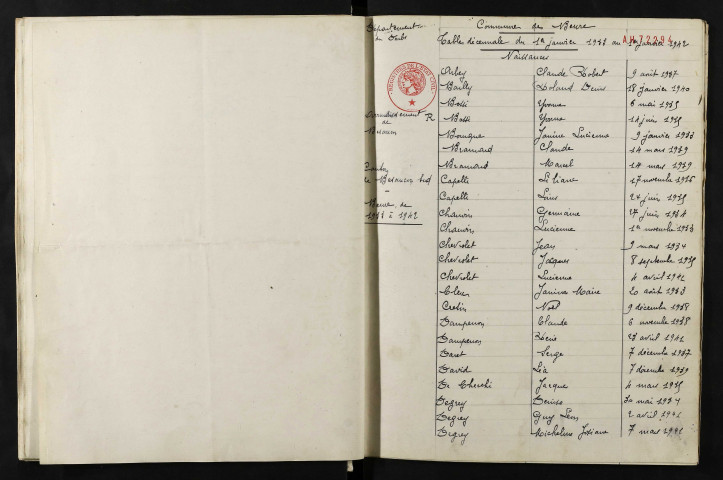 Département
du Doubs
Arrondissement
de
Besançon
Canton
de Besançon Sud
Beure de
1933 à 1942
R
Commune de Beure
Table décennale du 1er janvier 1933 au 1er janvier 1942
Naissances
Claude Robert 9 août 1937
Bailly Roland Denis 18 janvier 1940
Bossi Yvonne 6 mai 1935
Bossi Yvonne 14 juin 1935
Janine Lucienne 9 janvier 1933
Bramard Claude 14 mars 1939
Bramard Marcel 14 mars 1939
Capelli Liliane 17 novembre 1936
Capelli 24 juin 1935
Chauvin Germaine 27 juin 1934
Chauvin Lucienne 1er novembre 1933
Chevrolet Jean 9 mars 1934
Chevrolet Jacques 8 septembre 1935
Chevrolet Lucienne 4 avril 1941
Clerc Janine Marie 20 août 1933
Crétin Noël 9 décembre 1938
Dampenon Claude 6 novembre 1938
Dampenon 27 avril 1941
Daret Serge 7 décembre 1937
David Léa 7 décembre 1939
De Cherchi Jacques 4 mars 1935
Degrey Denise 30 mai 1934
Degrey Guy Léon 2 avril 1941
Degrey Micheline Josiane 7 mars 1941